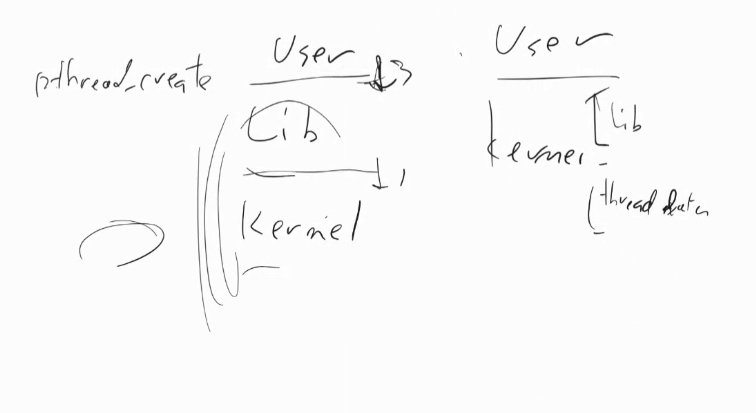 User
pthread_create
3
Lib
1
Kernel
User
Lib
Kernel
thread data